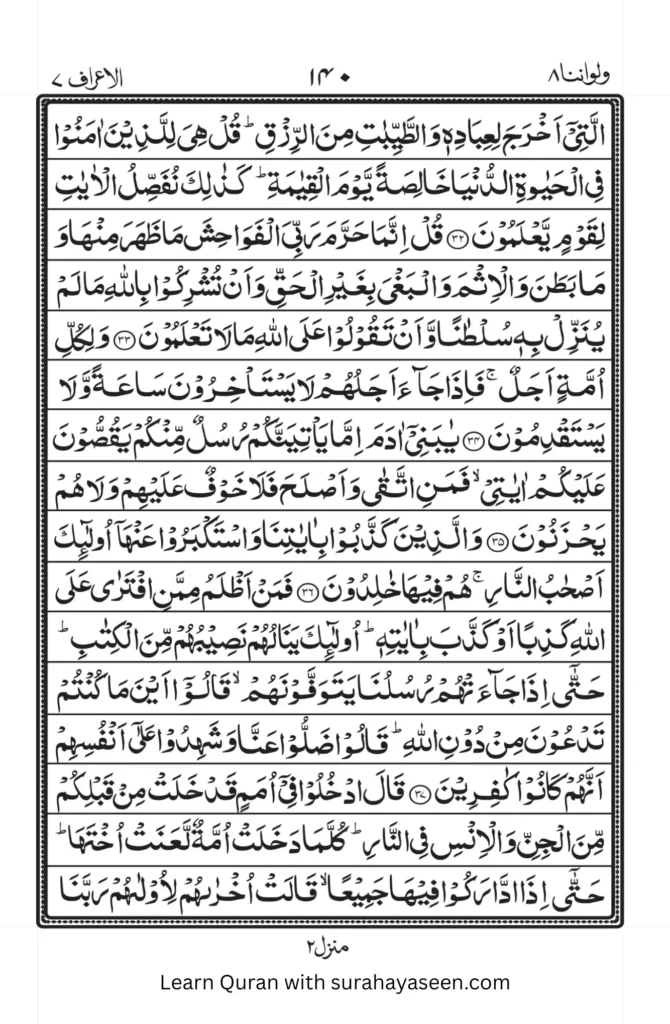 ولواننا ٨ ١٤٠ الاعراف ٧
الَّتِیْۤ اَخْرَجَ لِعِبَادِهٖ وَالطَّیِّبٰتِ مِنَ الرِّزْقِ ؕ قُلْ هِیَ لِلَّذِیْنَ اٰمَنُوْا
فِی الْحَیٰوةِ الدُّنْیَا خَالِصَةً یَّوْمَ الْقِیٰمَةِ ؕ كَذٰلِكَ نُفَصِّلُ الْاٰیٰتِ
لِقَوْمٍ یَّعْلَمُوْنَ ﴿۳۲﴾ قُلْ اِنَّمَا حَرَّمَ رَبِّیَ الْفَوَاحِشَ مَا ظَهَرَ مِنْهَا وَ
مَا بَطَنَ وَالْاِثْمَ وَالْبَغْیَ بِغَیْرِ الْحَقِّ وَاَنْ تُشْرِكُوْا بِاللّٰهِ مَا لَمْ
یُنَزِّلْ بِهٖ سُلْطٰنًا وَّاَنْ تَقُوْلُوْا عَلَی اللّٰهِ مَا لَا تَعْلَمُوْنَ ﴿۳۳﴾ وَلِكُلِّ
اُمَّةٍ اَجَلٌ ۚ فَاِذَا جَآءَ اَجَلُهُمْ لَا یَسْتَاْخِرُوْنَ سَاعَةً وَّلَا
یَسْتَقْدِمُوْنَ ﴿۳۴﴾ یٰبَنِیْۤ اٰدَمَ اِمَّا یَاْتِیَنَّكُمْ رُسُلٌ مِّنْكُمْ یَقُصُّوْنَ
عَلَیْكُمْ اٰیٰتِیْ ۙ فَمَنِ اتَّقٰی وَاَصْلَحَ فَلَا خَوْفٌ عَلَیْهِمْ وَلَا هُمْ
یَحْزَنُوْنَ ﴿۳۵﴾ وَالَّذِیْنَ كَذَّبُوْا بِاٰیٰتِنَا وَاسْتَكْبَرُوْا عَنْهَاۤ اُولٰٓئِكَ
اَصْحٰبُ النَّارِ ۚ هُمْ فِیْهَا خٰلِدُوْنَ ﴿۳۶﴾ فَمَنْ اَظْلَمُ مِمَّنِ افْتَرٰی عَلَی
اللّٰهِ كَذِبًا اَوْ كَذَّبَ بِاٰیٰتِهٖ ؕ اُولٰٓئِكَ یَنَالُهُمْ نَصِیْبُهُمْ مِّنَ الْكِتٰبِ ؕ
حَتّٰۤی اِذَا جَآءَتْهُمْ رُسُلُنَا یَتَوَفَّوْنَهُمْ ۙ قَالُوْۤا اَیْنَ مَا كُنْتُمْ
تَدْعُوْنَ مِنْ دُوْنِ اللّٰهِ ؕ قَالُوْا ضَلُّوْا عَنَّا وَشَهِدُوْا عَلٰۤی اَنْفُسِهِمْ
اَنَّهُمْ كَانُوْا كٰفِرِیْنَ ﴿۳۷﴾ قَالَ ادْخُلُوْا فِیْۤ اُمَمٍ قَدْ خَلَتْ مِنْ قَبْلِكُمْ
مِّنَ الْجِنِّ وَالْاِنْسِ فِی النَّارِ ؕ كُلَّمَا دَخَلَتْ اُمَّةٌ لَّعَنَتْ اُخْتَهَا ؕ
حَتّٰۤی اِذَا ادَّارَكُوْا فِیْهَا جَمِیْعًا ۙ قَالَتْ اُخْرٰىهُمْ لِاُوْلٰىهُمْ رَبَّنَا
منزل ٢
Learn Quran with surahayaseen.com